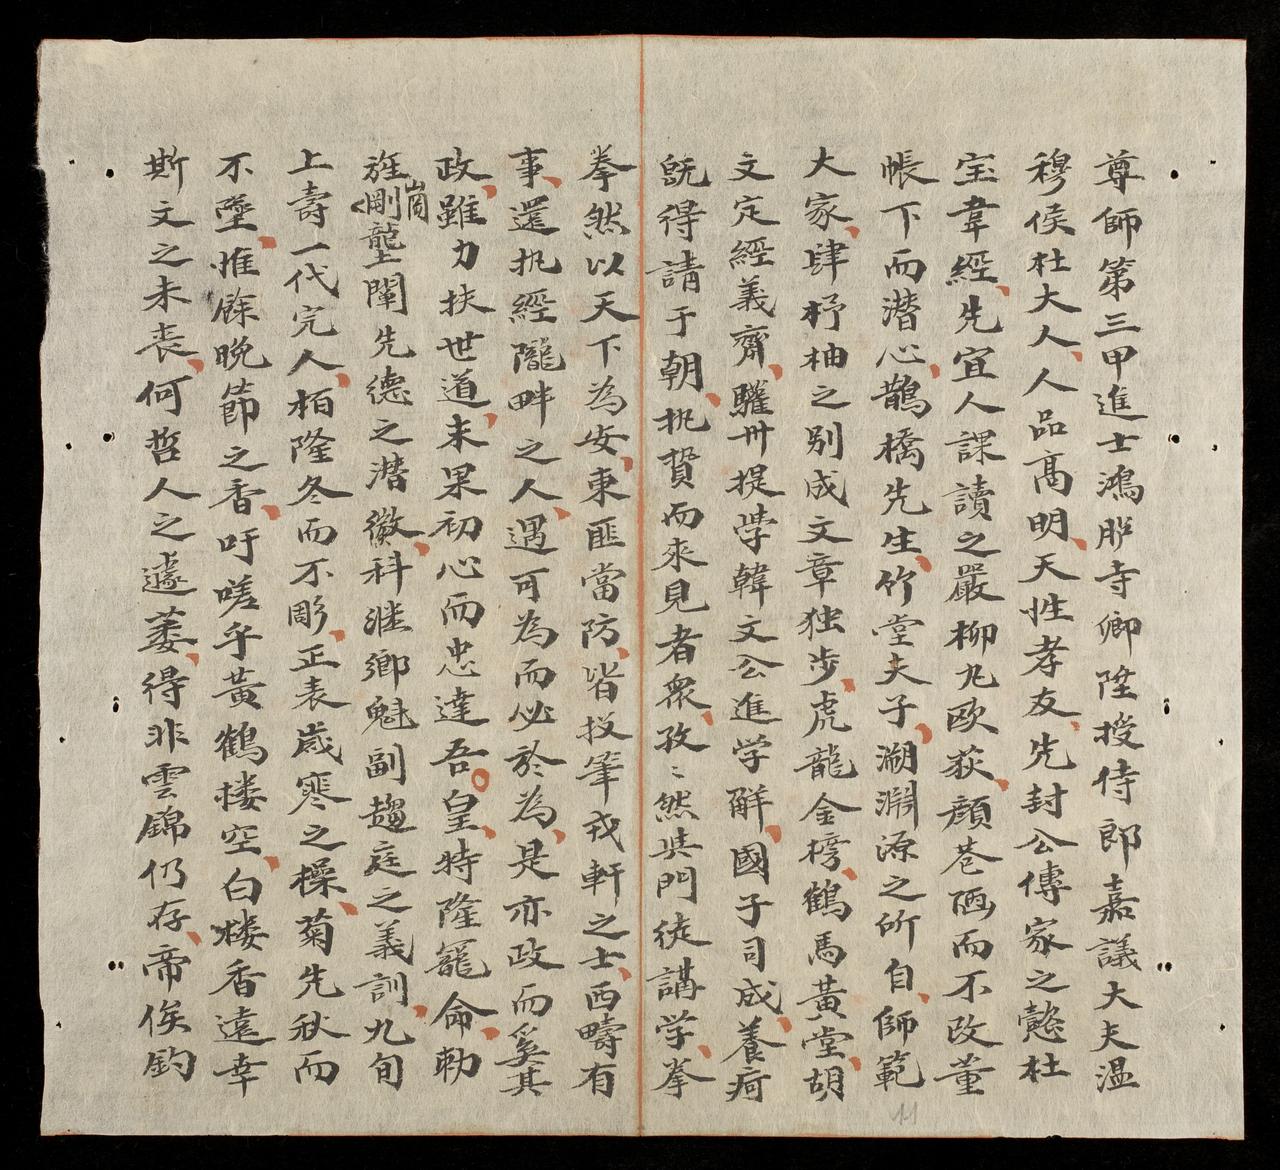 尊師第三甲進士鴻臚寺卿陞授侍郎嘉議大夫温
穆侯杜大人人品高明天性孝友先封公傳家之懿杜
宝韋經先宜人課讀之嚴柳丸歐荻顔巷陋而不改董
帳下而潜心鵲橋先生竹堂夫子溯淵源之所自師範
大家肆杼柚之别成文章独步虎龍金榜鶴馬黄堂胡
文定經義齋驩卅提學韓文公進学觧國子司成養疴
既得請于朝執贄而來見者衆孜〻然共門徒講学拳
拳然以天下為安東匪當防皆投筆戎軒之士西疇有
事還执經隴畔之人遇可為而必於為是亦政而奚其
政雖力扶世道未果初心而忠達吾皇特隆寵命勅
旌剛崗壟闡先德之潜徽科継鄉魁副趨庭之義訓九旬
上壽一代完人栢隆冬而不彫正表歲寒之操菊先秋而
不墜惟餘晩節之香吁嗟乎黄鶴楼空白楼香遠幸
斯文之未丧何哲人之遽萎得非雲錦仍存帝俟鈞